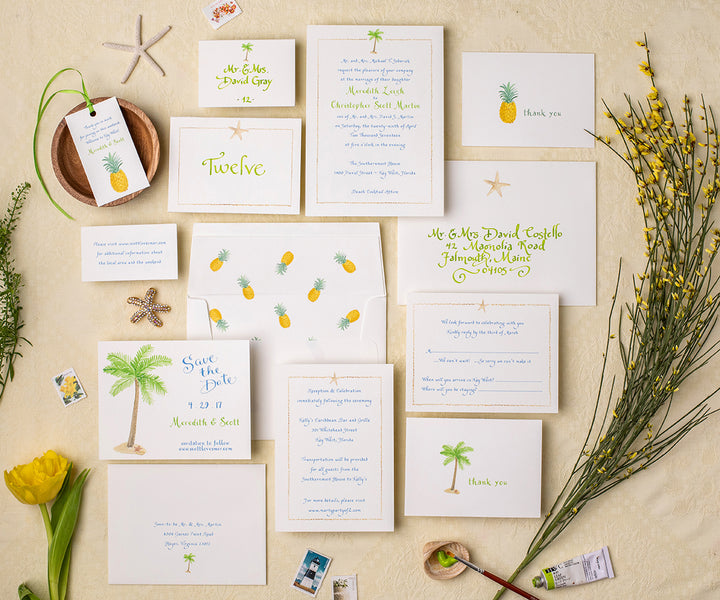 Mr. & Mrs.
David Gray
- 12 -
Mr. and Mrs. Michael T.
request the pleasure of your company
at the marriage of their daughter
Meredith
to
Christopher Scott Martin
son of Mr. and Mrs. David J. Martin
on Saturday, the twenty-ninth of April
Two Thousand Seventeen
at five o'clock in the evening
The Southernmost House
1400 Duval Street ~ Key West, Florida
Beach Cocktail Attire
thank you
Thank you so much
for joining us this weekend
Meredith & Scott
Twelve
Mr. & Mrs. David Costello
42 Magnolia Road
Falmouth, Maine
04105
Please visit
for additional information about
the local area and the weekend
We look forward to celebrating with you
Kindly reply by the third of March
M
We can't wait!
So sorry we can't make it
When will you arrive in Key West?
Where will you be staying?
Save
the
Date
4 . 29 . 17
Meredith & Scott
invitation to follow
Reception & Celebration
immediately following the ceremony
Kelly's Caribbean Bar and Grille
301 Whitehead Street
Key West, Florida
Transportation will be provided
for all guests from the
Southernmost House to Kelly's
For more details, please visit
thank you
Mr. & Mrs. Martin
Virginia